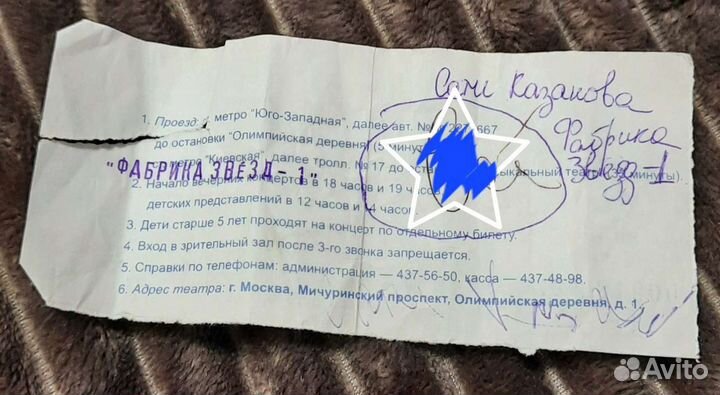 Сати Казанова
Фабрика
Звезд-1
1. Проезд: метро "Юго-Западная", далее авт. № 667
до остановки "Олимпийская деревня"
"ФАБРИКА ЗВЕЗД-1"
метро "Киевская", далее тролл. № 17 до
2. Начало вечерних концертов в 18 часов и 19 часов
детских представлений в 12 часов и 14 часов
3. Дети старше 5 лет проходят на концерт по отдельному билету.
4. Вход в зрительный зал после 3-го звонка запрещается.
5. Справки по телефонам: администрация — 437-56-50, касса — 437-48-98.
6. Адрес театра: г. Москва, Мичуринский проспект, Олимпийская деревня, д. 1.
Avito